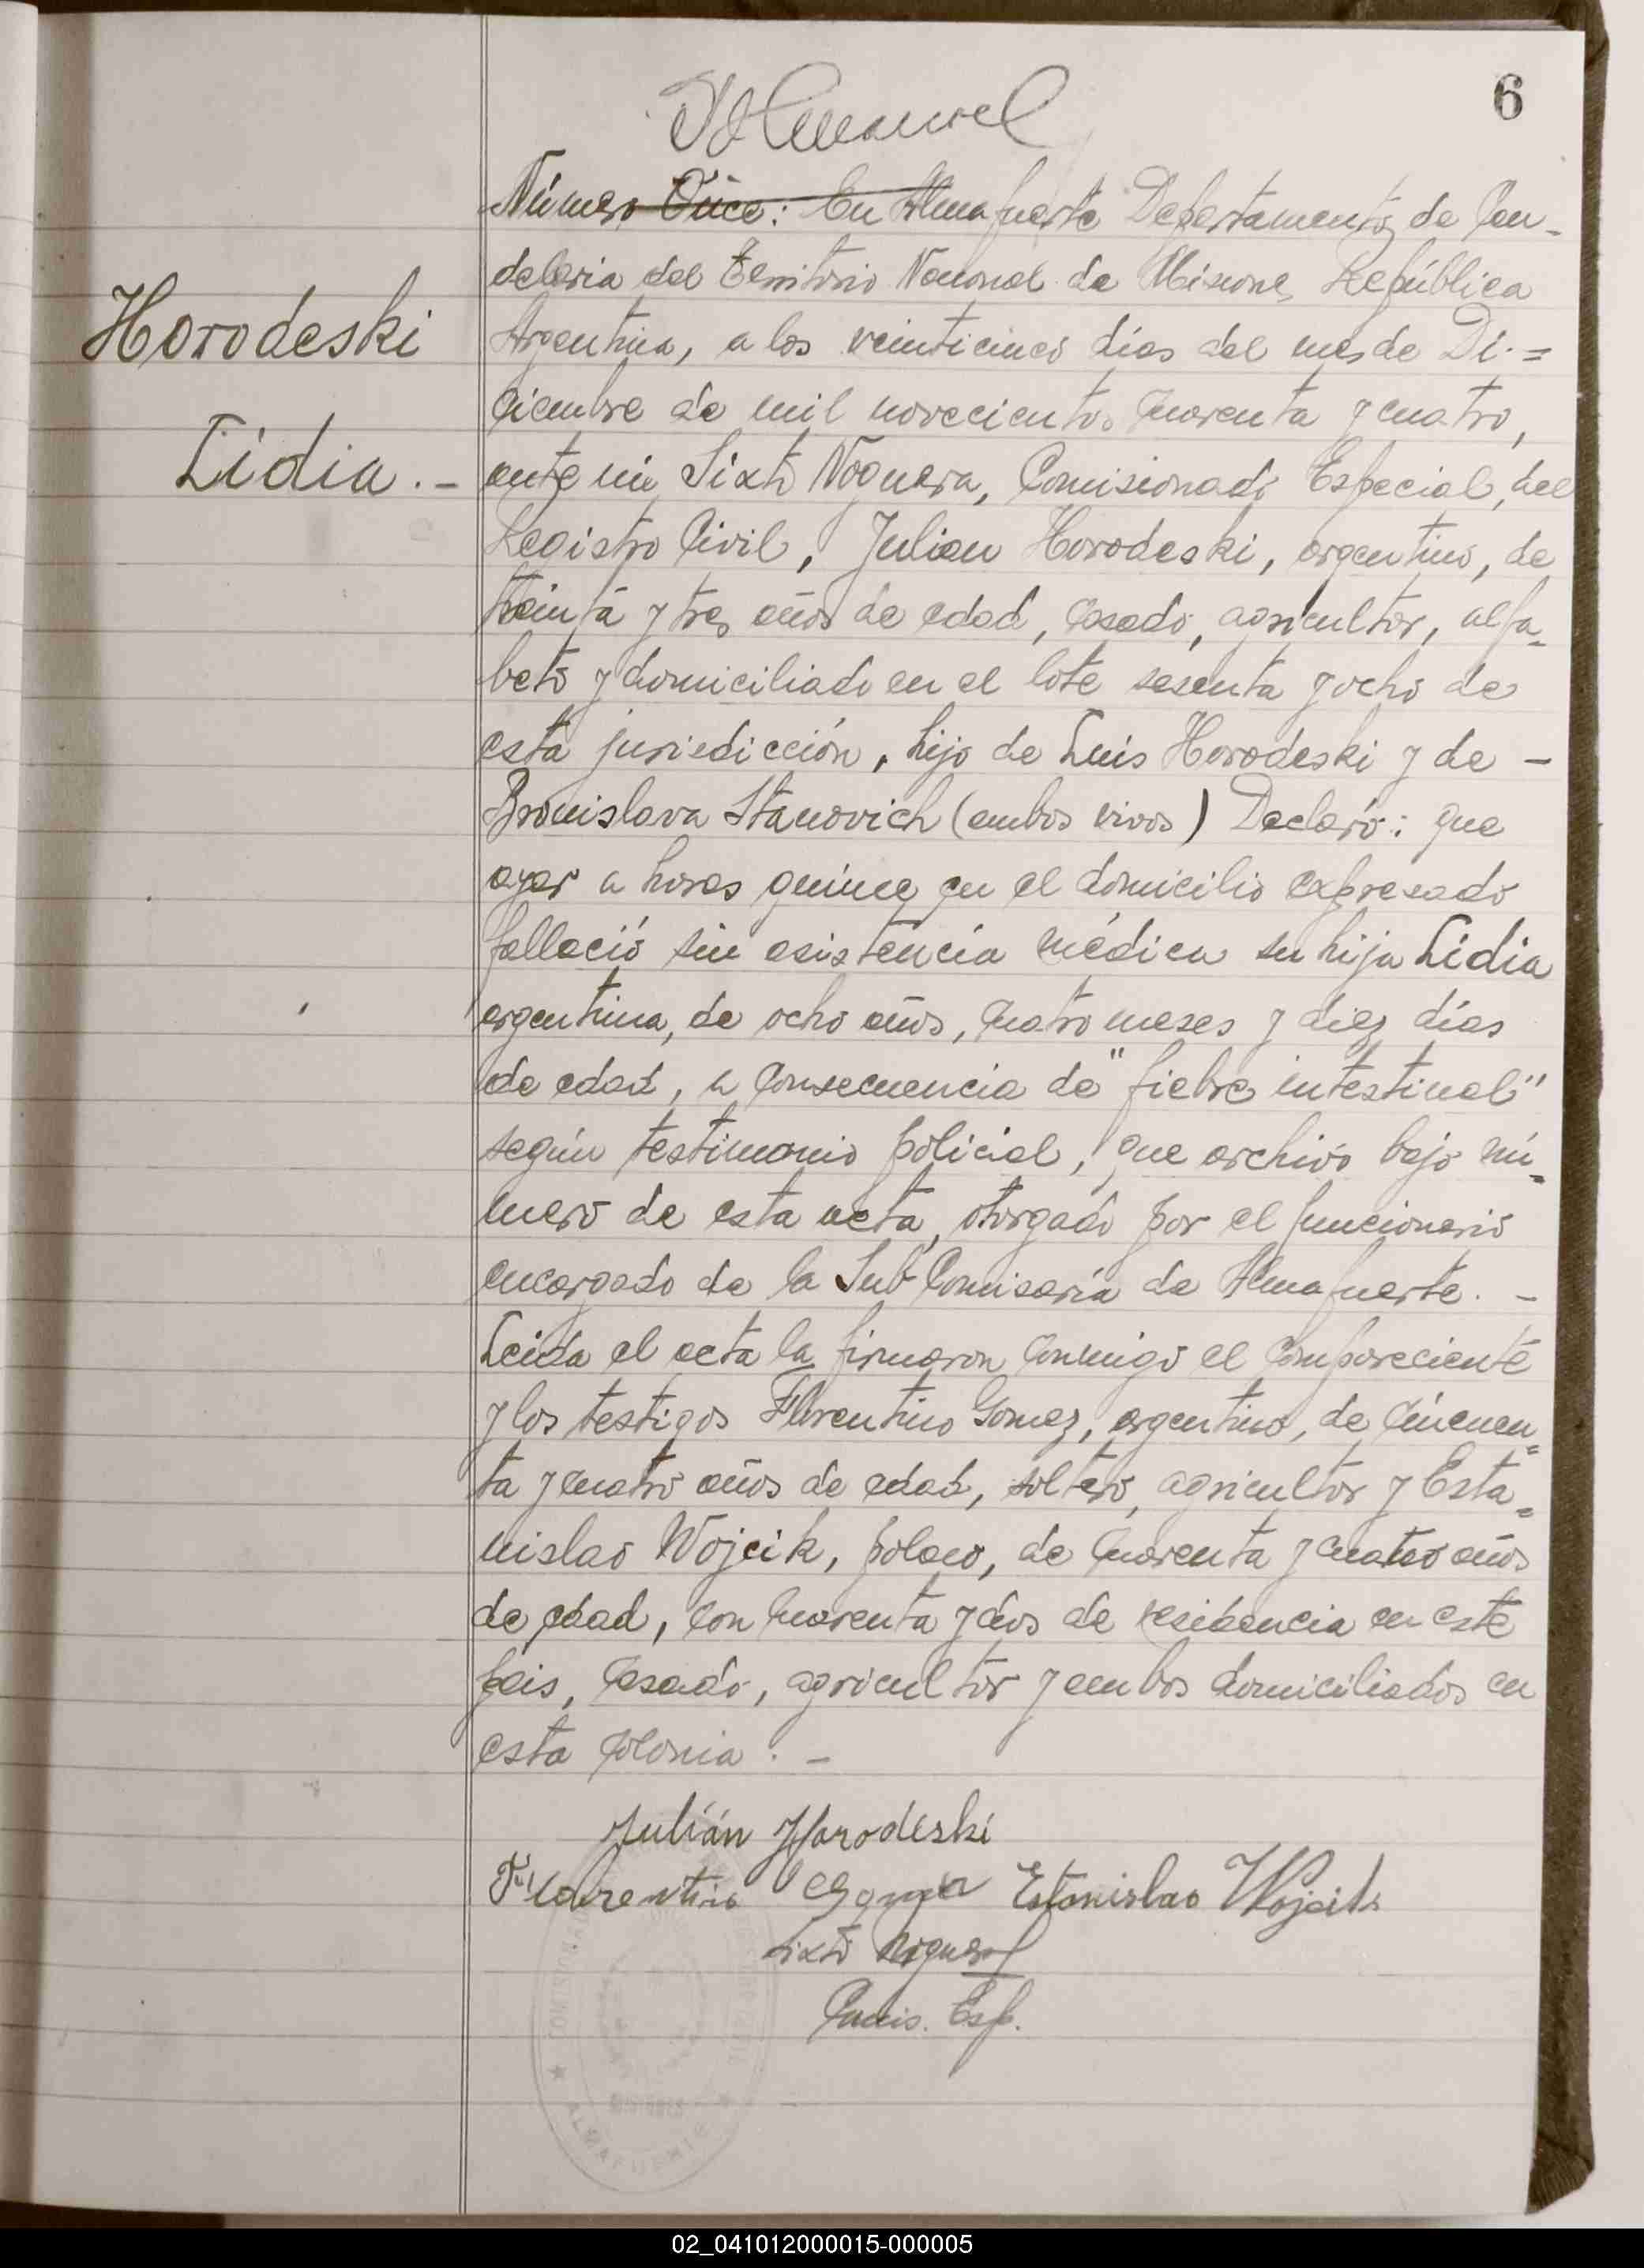 6
Número Once: En Almafuerte Departamento de Can-
delaria del Territorio Nacional de Misiones República
Horodeski
Argentina, a los veinticinco días del mes de Di-=
ciembre de mil novecientos cuarenta y cuatro,
Lidia.-
ante mi Sixto Noguera, Comisionado Especial, del
Registro Civil, Julian Horodeski, argentino, de
treinta y tres años de edad, casado, agricultor, alfa-
beto y domiciliado en el lote sesenta y ocho de
esta jurisdicción, hijo de Luis Horodeski y de -
Bronislava Stanovich (ambos vivos) Declaró: que
ayer a horas quince en el domicilio expresado
falleció sin asistencia médica su hija Lidia
argentina, de ocho años, cuatro meses y diez días
de edad, a consecuencia de "fiebre intestinal"
según testimonio policial, que archivo bajo nú-
mero de esta acta, otorgado por el funcionario
encargado de la Sub Comisaría de Almafuerte. -
Leida el acta la firmaron conmigo el compareciente
y los testigos Florentino Gomez, argentino, de cincuen=
ta y cuatro años de edad, soltero, agricultor y Esta=
nislao Wojcik, polaco, de cuarenta y cuatro años
de edad, con cuarenta y dos de residencia en este
pais, casado, agricultor y ambos domiciliados en
esta colonia. -
Julián Horodeski
Florentino Gomez Estanislao Wojcik
Sixto Noguera
Comis. Esp.
ALMAFUERTE
02_041012000015-000005